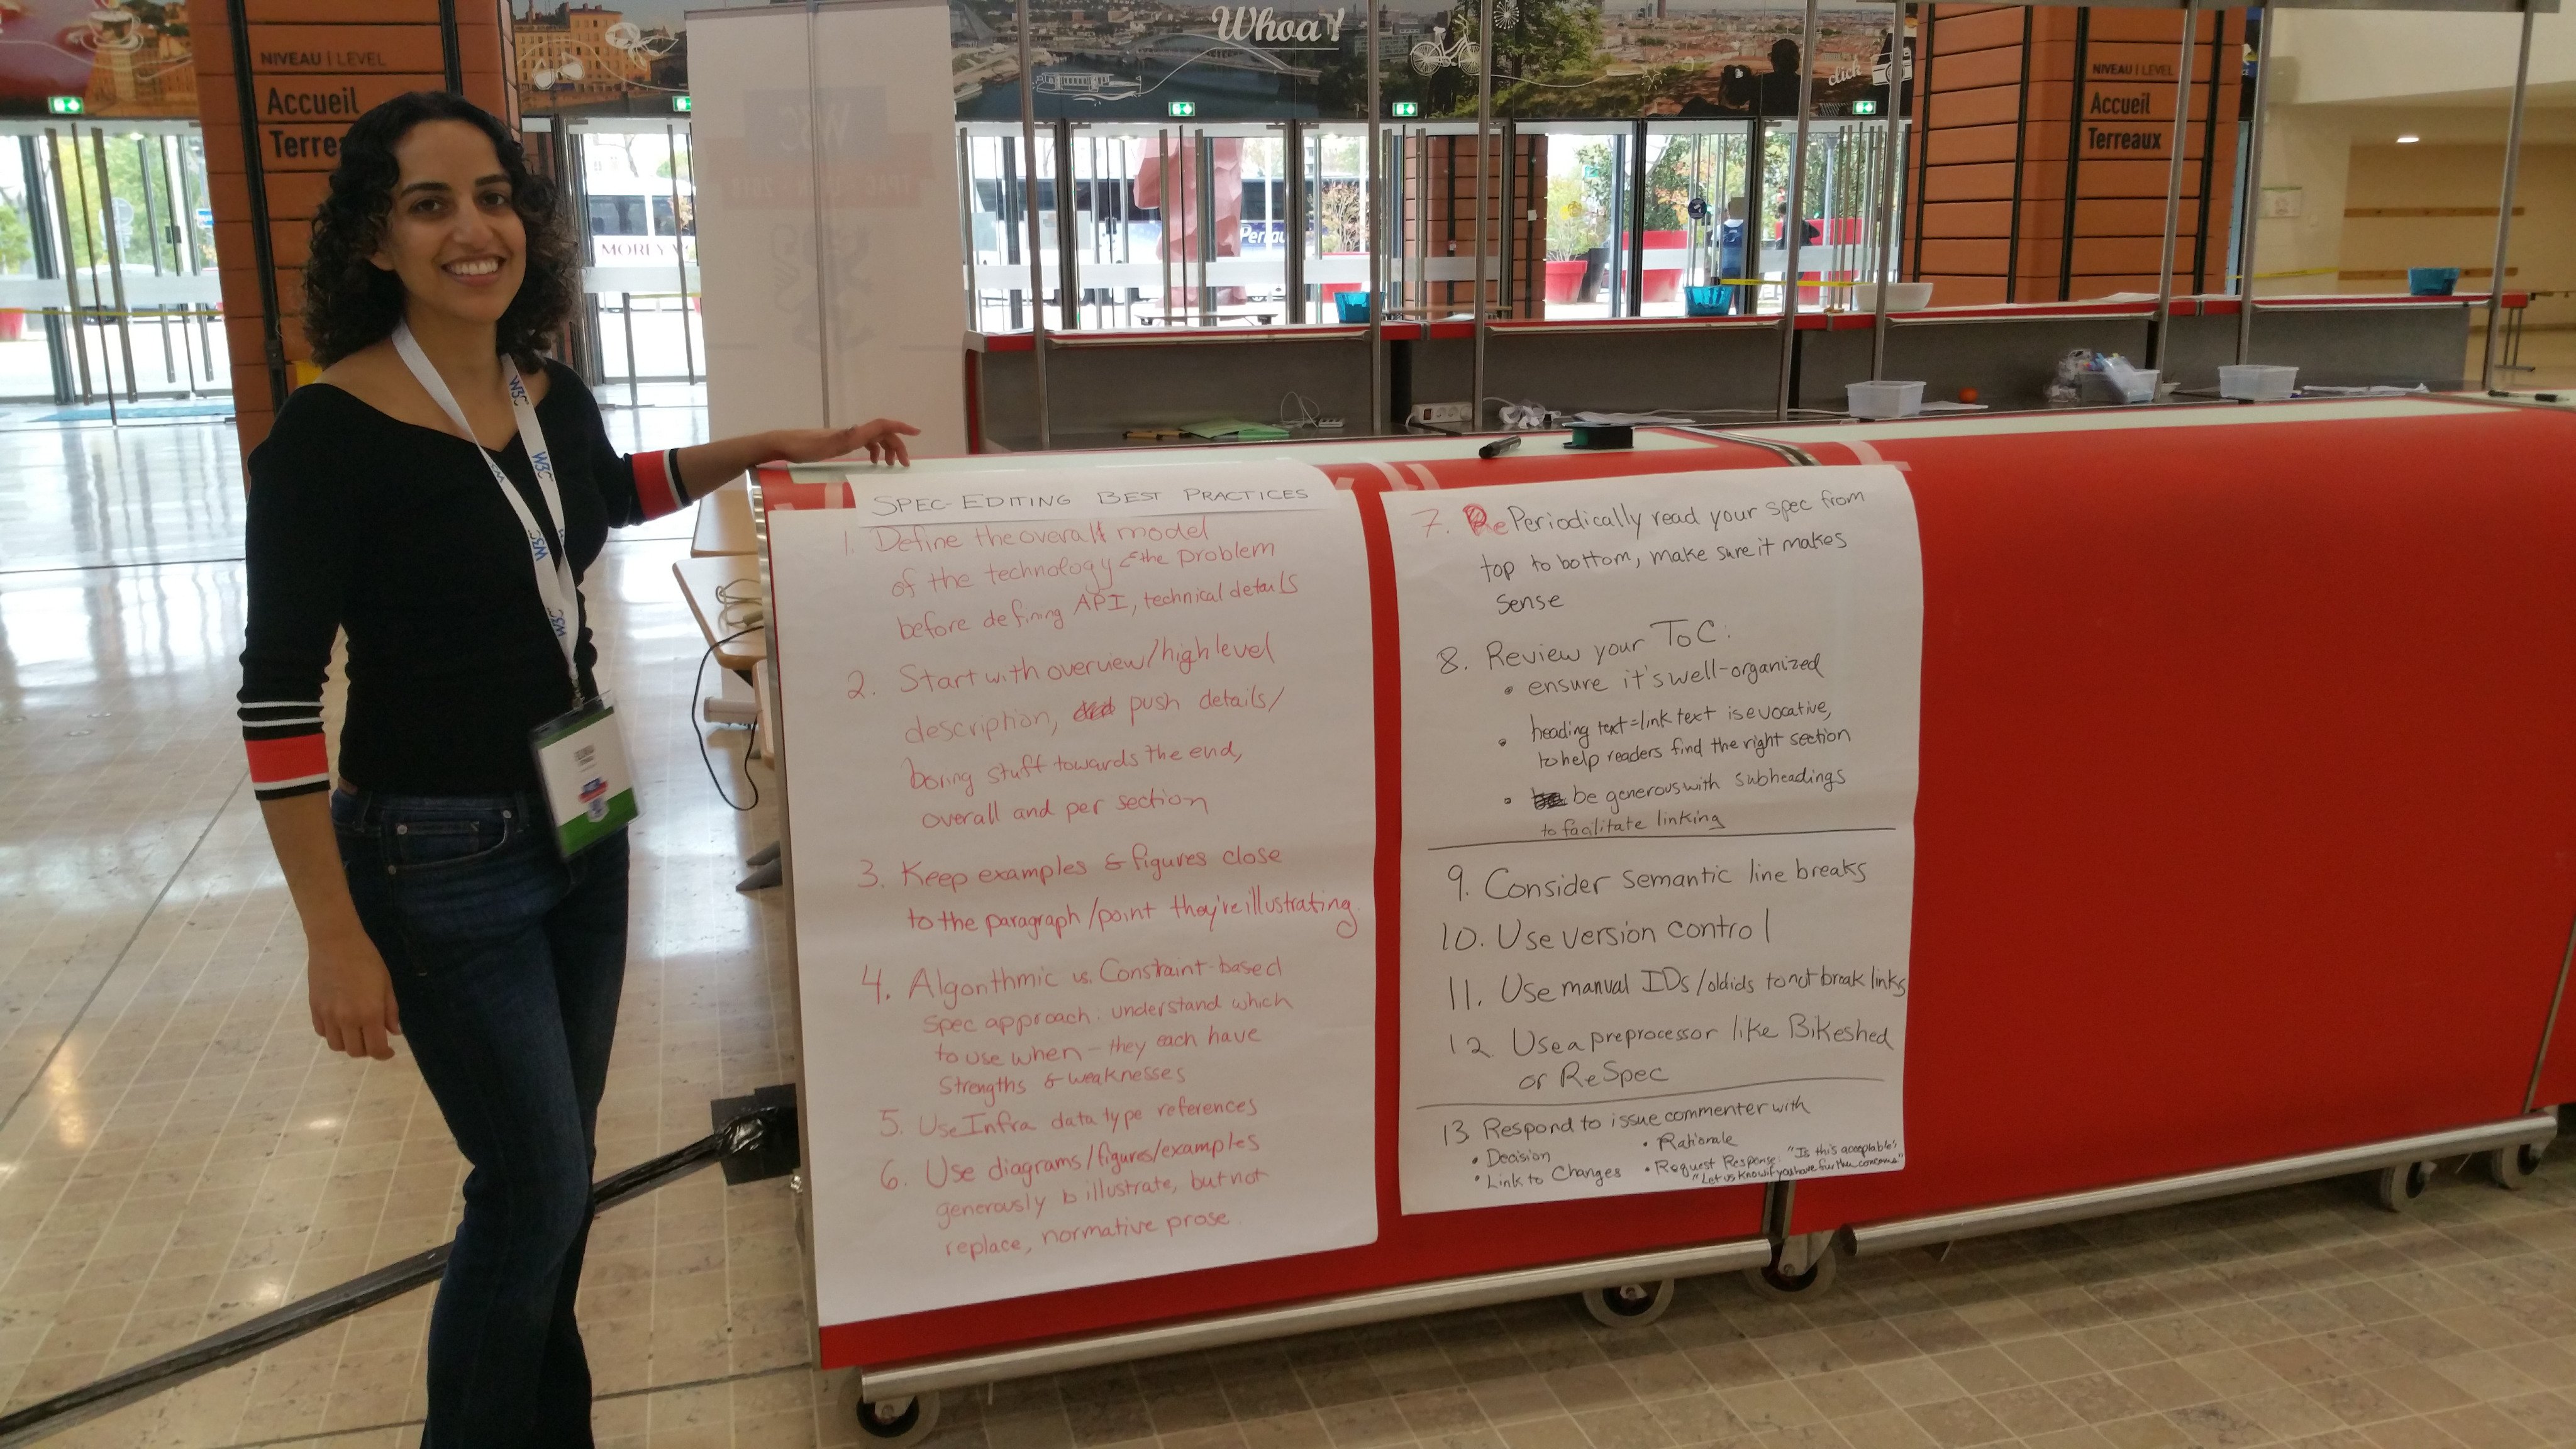 Whoa
click
NIVEAU | LEVEL
Accueil
Terre
NIVEAU | LEVEL
Accueil
Terreaux
W3C
W3C
W3C
W3C
W3C
SPEC-EDITING BEST PRACTICES
1. Define the overall model
of the technology & the problem
before defining API, technical details
2. Start with overview/high level
description, push details/
boring stuff towards the end,
overall and per section
3. Keep examples & figures close
to the paragraph/point they're illustrating.
4. Algorithmic vs. Constraint-based
spec approach: understand which
to use when – they each have
strengths & weaknesses
5. Use Infra data type references
6. Use diagrams/figures/examples
generously to illustrate, but not
replace, normative prose
7. Re Periodically read your spec from
top to bottom, make sure it makes
sense
8. Review your ToC:
• ensure it's well-organized
• heading text = link text is evocative,
to help readers find the right section
• be generous with subheadings
to facilitate linking
9. Consider semantic line breaks
10. Use version control
11. Use manual IDs/oldids to not break links
12. Use a preprocessor like Bikeshed
or ReSpec
13 Respond to issue commenter with
• Decision
• Link to Changes
• Rationale
• Request Response: "Is this acceptable"
"Let us know if you have further concerns"